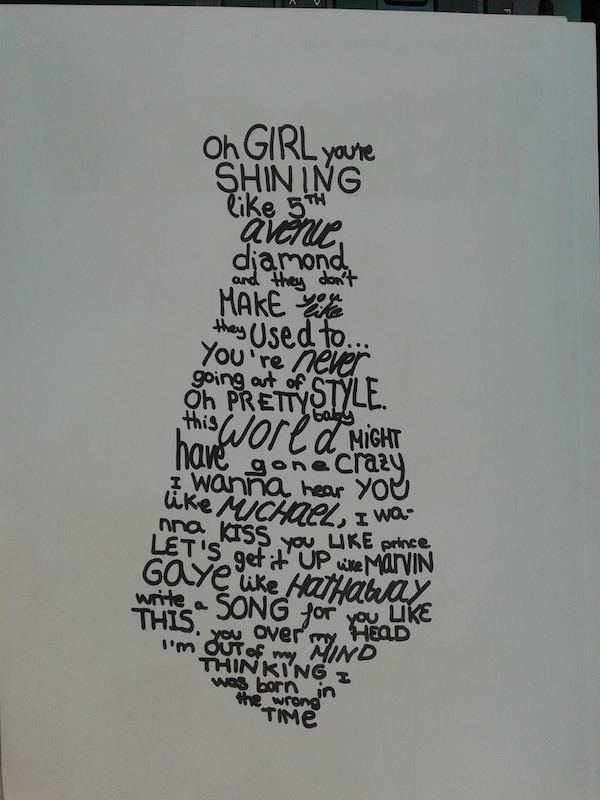 Oh GIRL you're
SHINING
like 5TH
avenue
diamond
and they don't
MAKE you like
they used to...
You're never
going out of STYLE.
Oh PRETTY baby
this world MiGHT
have gone crazy
I wanna hear YOU
Like MICHAEL, I wa-
nna KISS you LIKE prince
LET'S get it UP like MARVIN
GAYE like HATHAWAY
write a SONG for you LIKE
THIS. you over my HEAD
I'm OUT of my MIND
THINKING I
was born in
the wrong
TIME